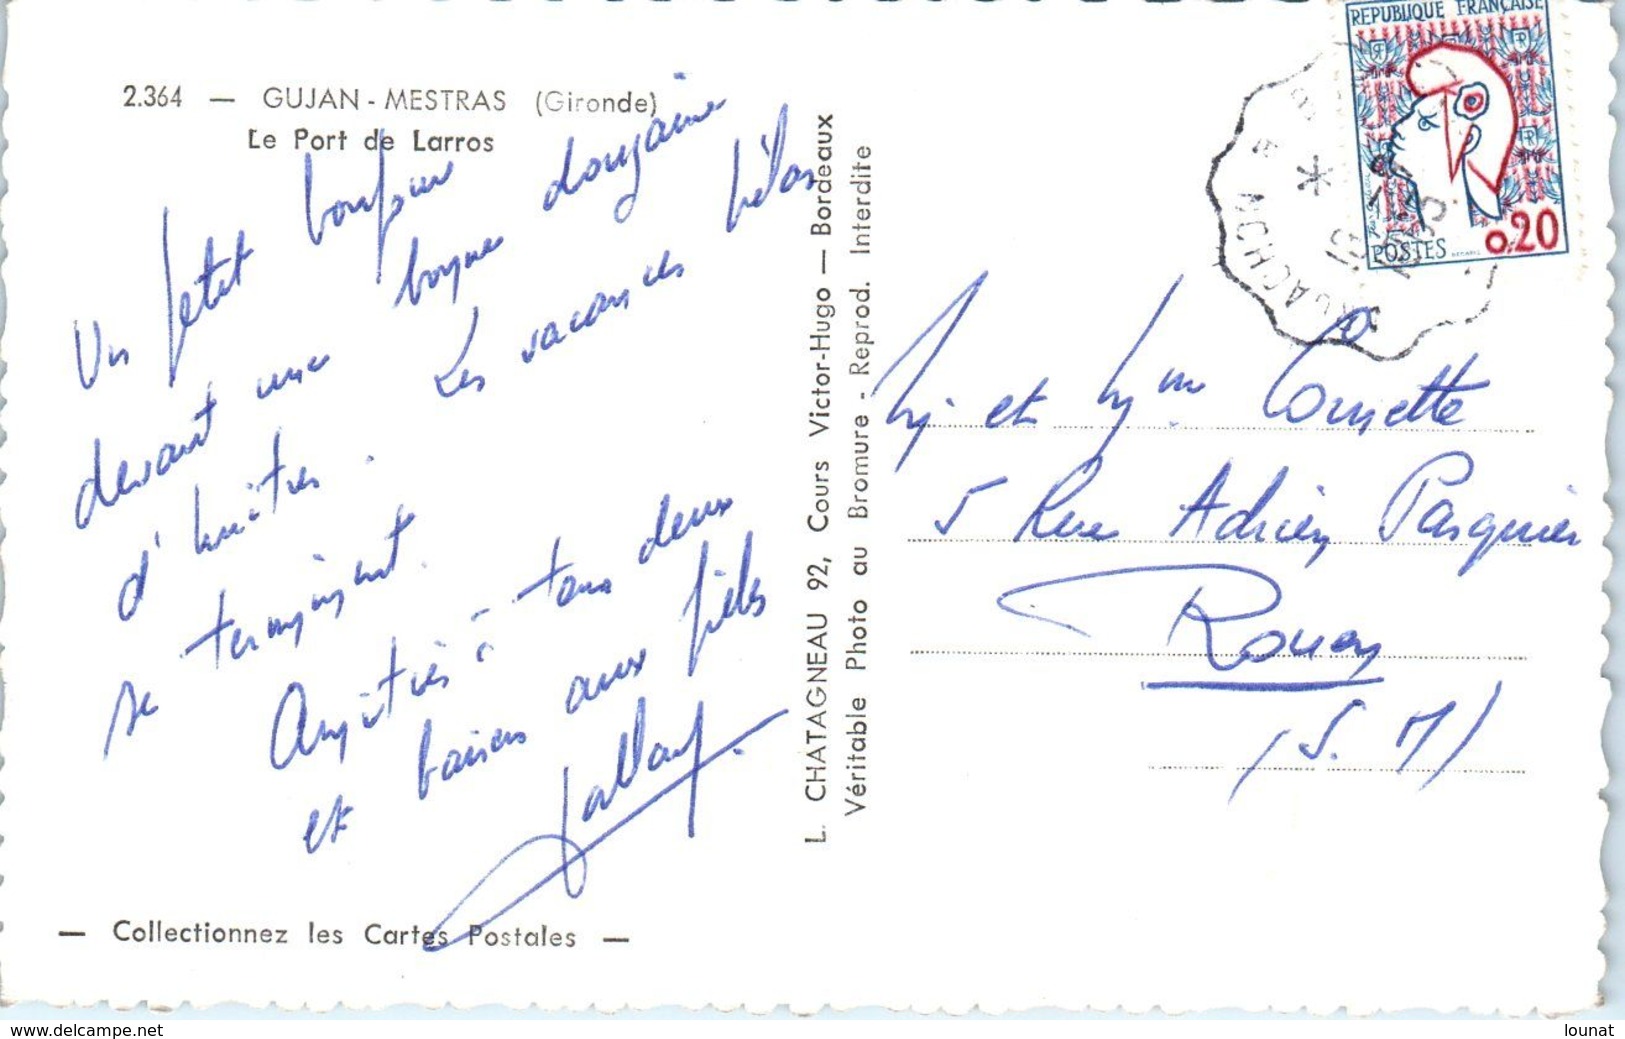 2.364 — GUJAN-MESTRAS (Gironde)
Le Port de Larros
Un petit bonjour
devant une bonne douzaine
d'huîtres. Les vacances hélas
se terminent.
Amitiés à tous deux
et baisers aux filles
— Collectionnez les Cartes Postales —
L. CHATAGNEAU 92, Cours Victor-Hugo — Bordeaux
Véritable Photo au Bromure - Reprod. Interdite
REPUBLIQUE FRANÇAISE
POSTES 0,20
M. et Mme
5 Rue Adrien Pasquier
Rouen
(S. M)
www.delcampe.net
lounat